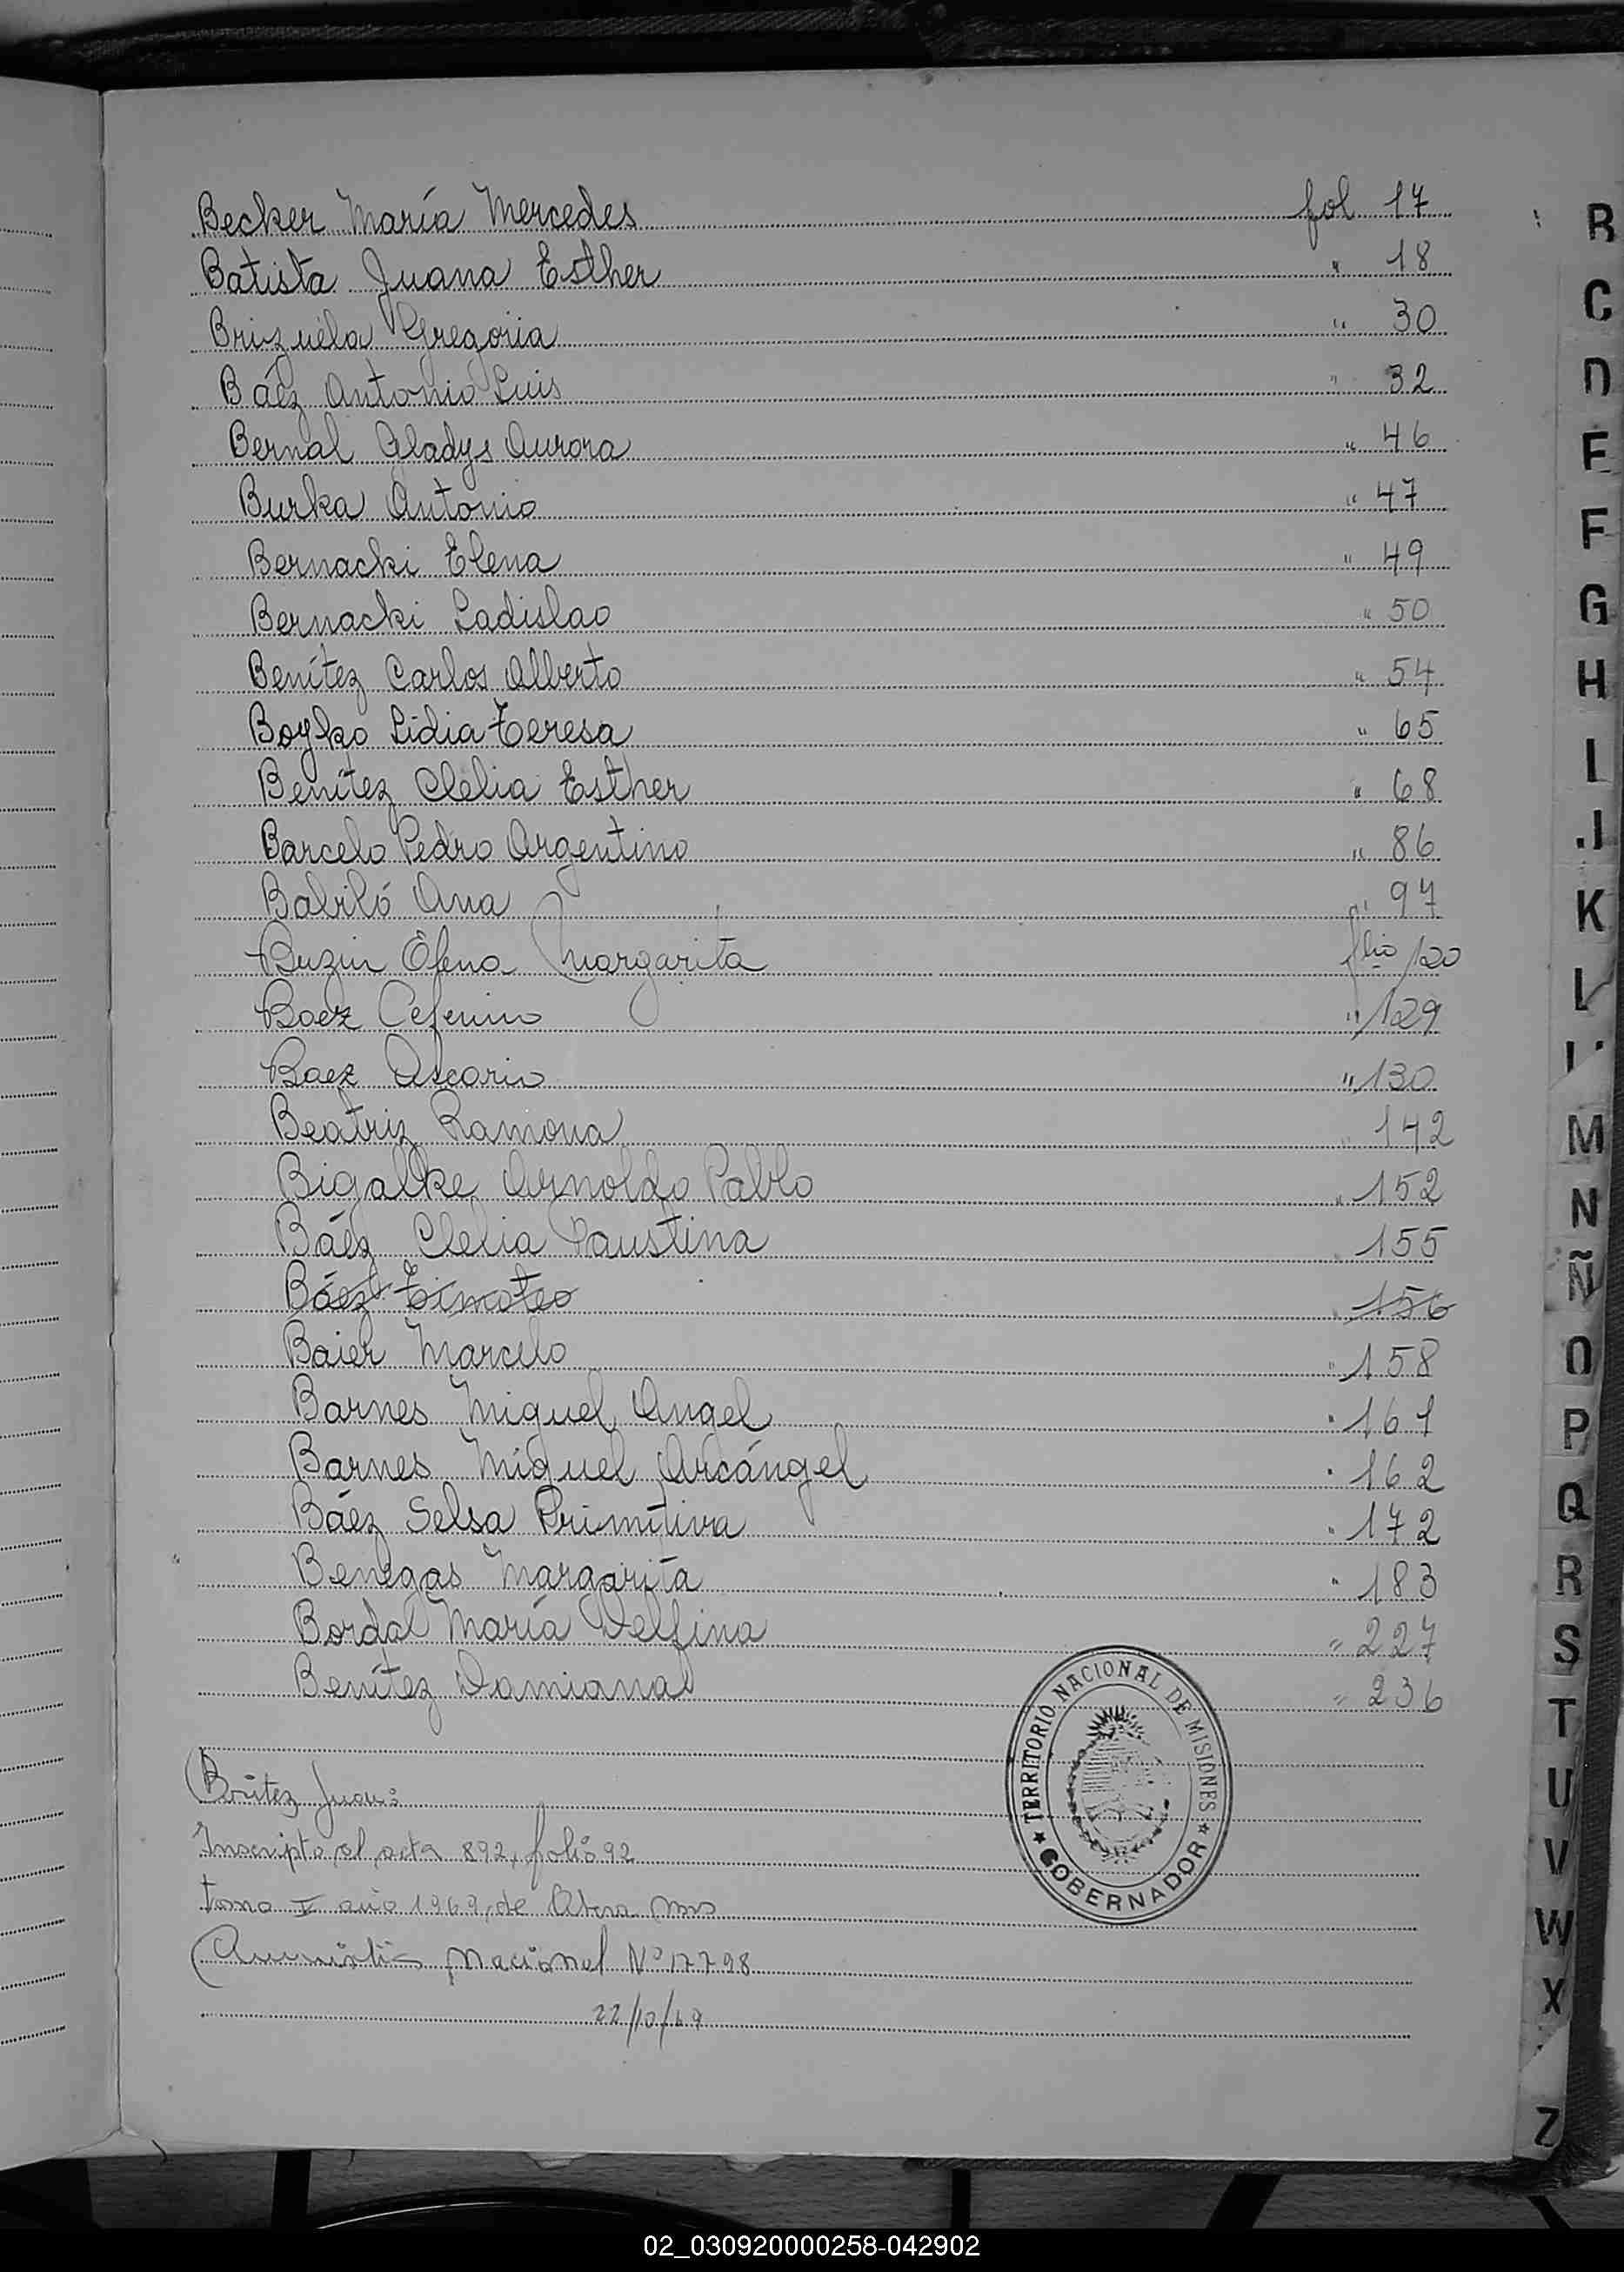 Becker María Mercedes fol 17
Batista Juana Esther " 18
Brizuela Gregoria " 30
Báez Antonio Luis " 32
Bernal Gladys Aurora " 46
Burka Antonio " 47
Bernacki Elena " 49
Bernacki Ladislao " 50
Benítez Carlos Alberto " 54
Boyko Lidia Teresa " 65
Benítez Clelia Esther " 68
Barcelo Pedro Argentino " 86
Babiló Ana " 97
Buzin Elena Margarita flio 120
Baez Ceferino " 129
Baez Ascario " 130
Beatriz Ramona " 142
Bigalke Arnoldo Pablo " 152
Báez Clelia Faustina " 155
Báez Timoteo " 156
Baier Marcelo " 158
Barnes Miguel Angel " 161
Barnes Miguel Arcángel " 162
Báez Selsa Primitiva " 172
Benegas Margarita " 183
Bordal María Delfina " 227
Benítez Damiana " 236
TERRITORIO NACIONAL DE MISIONES
★ GOBERNADOR ★
Juan:
Inscripto al acta 892, folio 92
tomo I año 1969, de Obera Mns
Nacional Nº 17798
22/10/69
R
C
D
E
F
G
H
I
J
K
L
M
N
Ñ
O
P
Q
R
S
T
U
V
W
X
Z
02_030920000258-042902